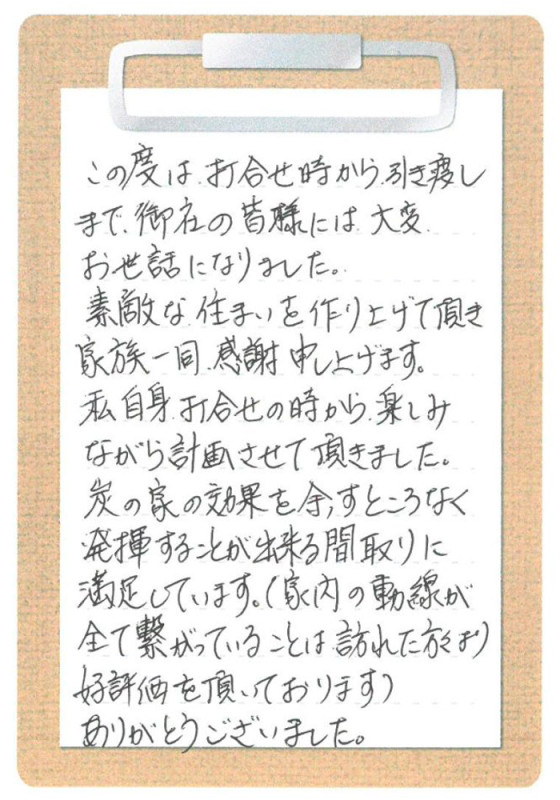 この度は、打合せ時から、引き渡し
まで、御社の皆様には、大変、
お世話になりました。
素敵な住まいを作り上げて頂き
家族一同、感謝申し上げます。
私自身、打合せの時から、楽しみ
ながら計画させて頂きました。
炭の家の効果を余すところなく
発揮することが出来る間取りに
満足しています。(家内の動線が
全て繋がっていることは、訪れた方々より
好評価を頂いております)
ありがとうございました。